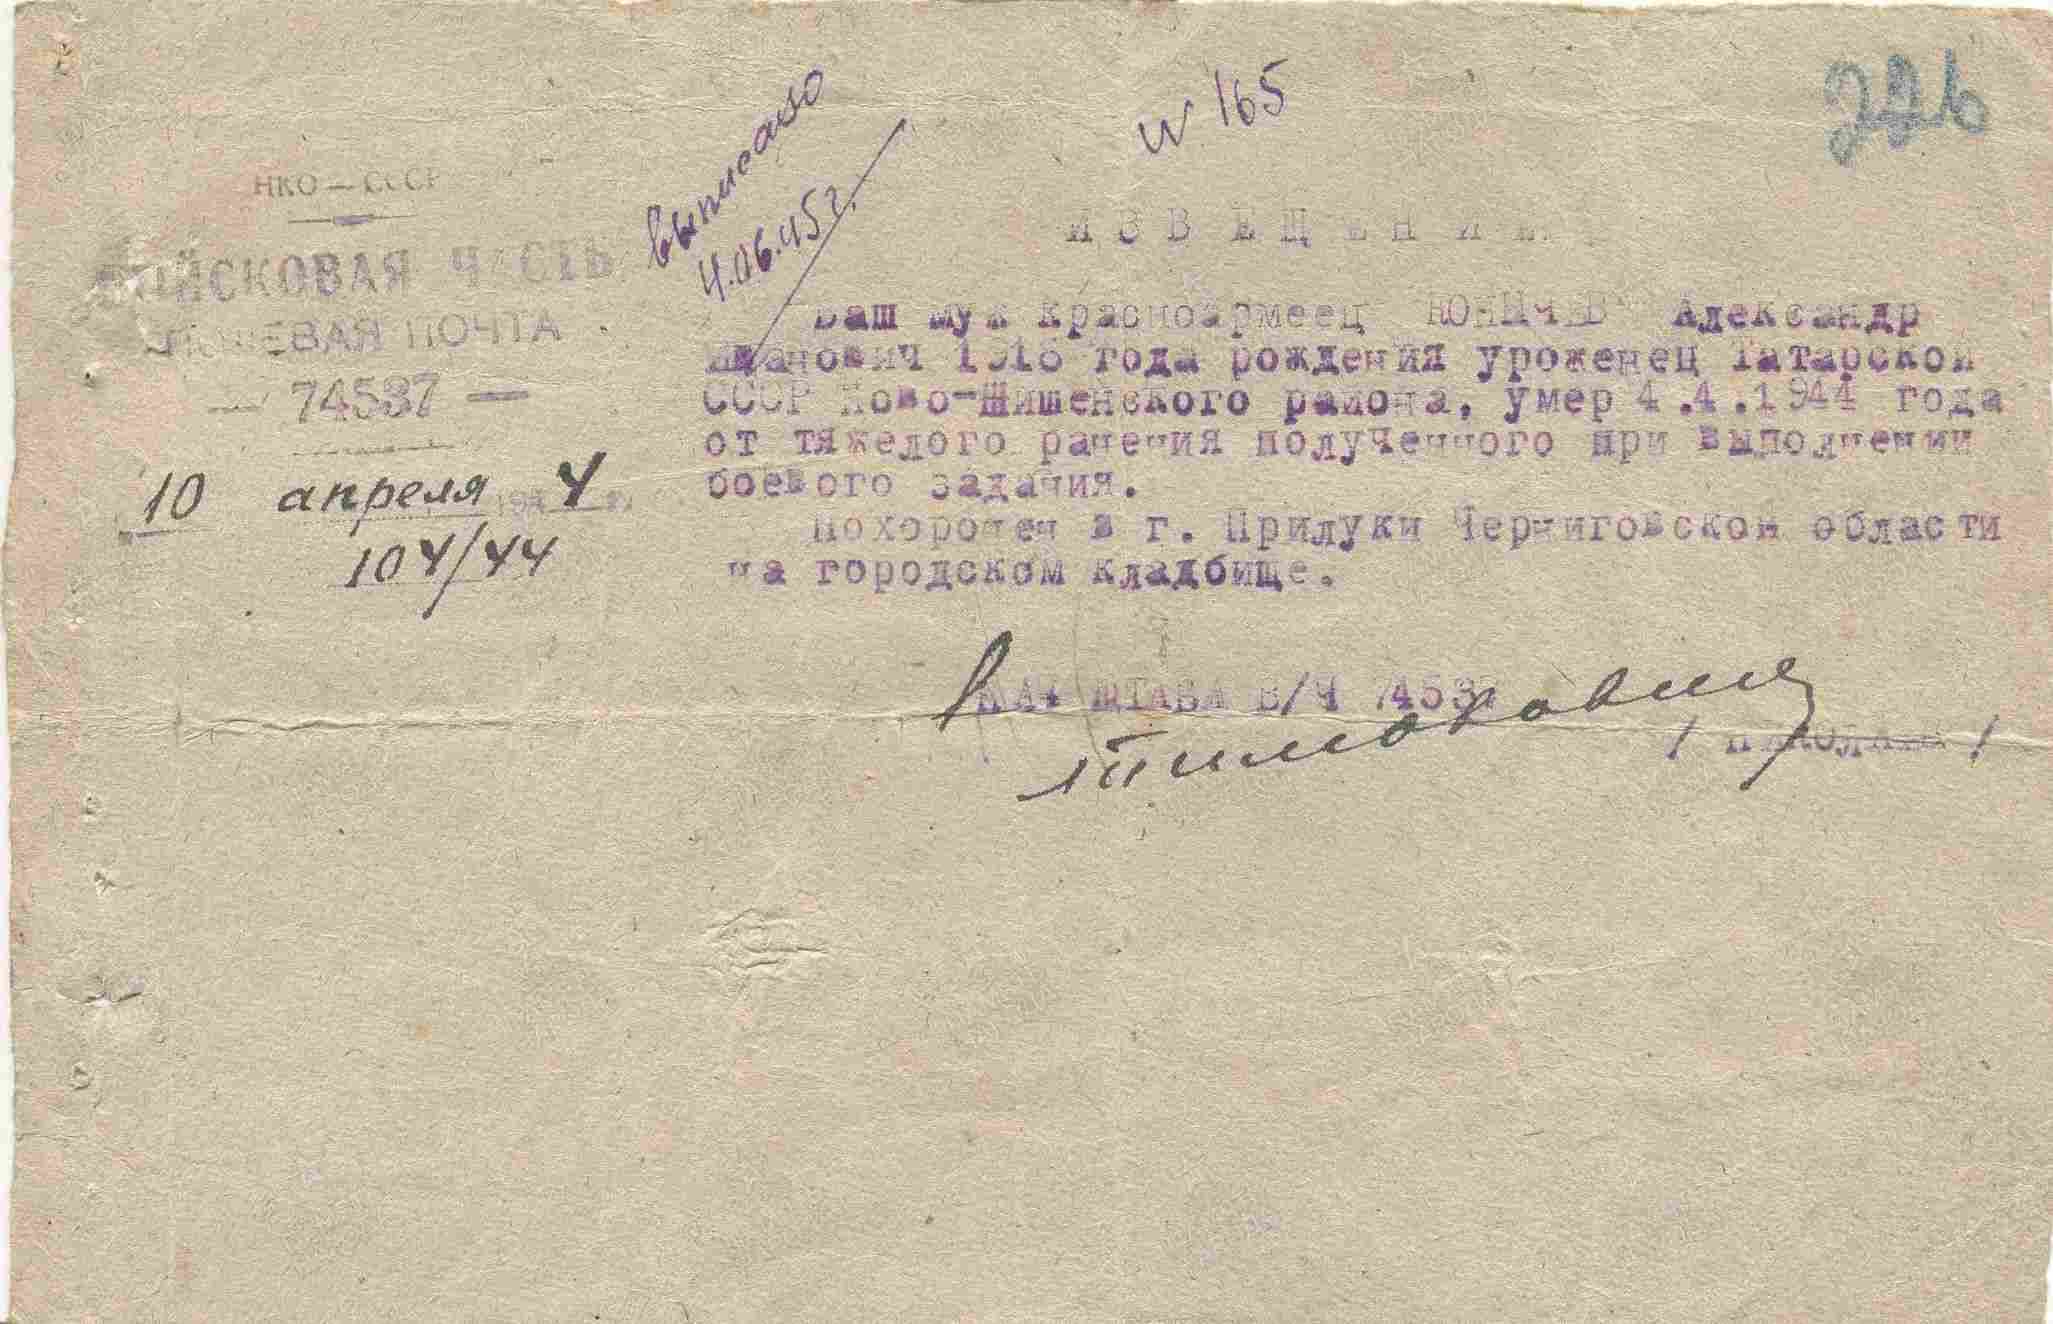 226
N 165
выписано
4.06.45 г.
НКО — СССР
ВОЙСКОВАЯ ЧАСТЬ
ПОЛЕВАЯ ПОЧТА
— 74537 —
10 апреля 1944 г.
104/44
ИЗВЕЩЕНИЕ.
Ваш муж красноармеец Александр
Иванович 1918 года рождения уроженец Татарской
СССР Ново-Шишенского района, умер 4.4.1944 года
от тяжелого ранения полученного при выполнении
боевого задания.
Похоронен в г. Прилуки Черниговской области
на городском кладбище.
НАЧ ШТАБА В/Ч 74537